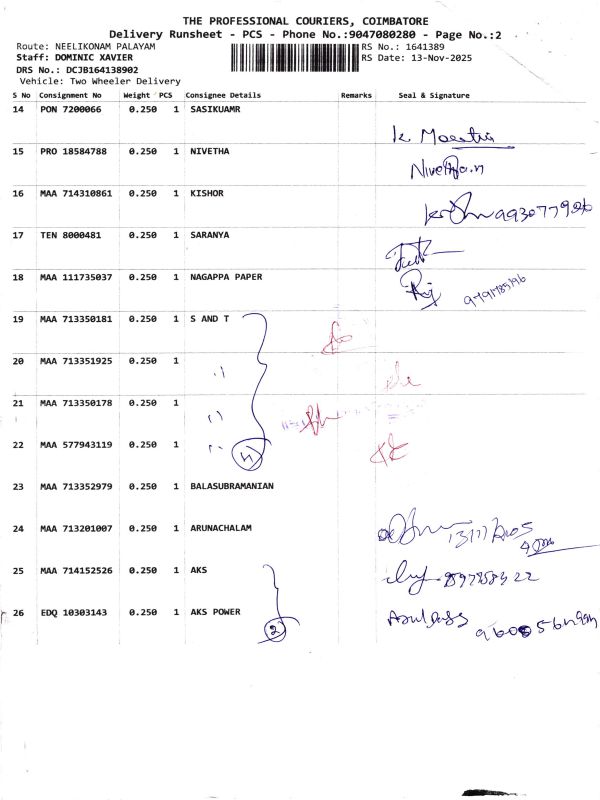 THE PROFESSIONAL COURIERS, COIMBATORE
Delivery Runsheet - PCS - Phone No.:9047080280 - Page No.:2
Route: NEELIKONAM PALAYAM
RS No.: 1641389
Staff: DOMINIC XAVIER
RS Date: 13-Nov-2025
DRS No.: DCJB164138902
Vehicle: Two Wheeler Delivery
S No Consignment No Weight PCS Consignee Details Remarks Seal & Signature
14 PON 7200066 0.250 1 SASIKUAMR
15 PRO 18584788 0.250 1 NIVETHA
16 MAA 714310861 0.250 1 KISHOR
17 TEN 8000481 0.250 1 SARANYA
18 MAA 111735037 0.250 1 NAGAPPA PAPER
19 MAA 713350181 0.250 1 S AND T
20 MAA 713351925 0.250 1
21 MAA 713350178 0.250 1
22 MAA 577943119 0.250 1
23 MAA 713352979 0.250 1 BALASUBRAMANIAN
24 MAA 713201007 0.250 1 ARUNACHALAM
25 MAA 714152526 0.250 1 AKS
26 EDQ 10303143 0.250 1 AKS POWER
2